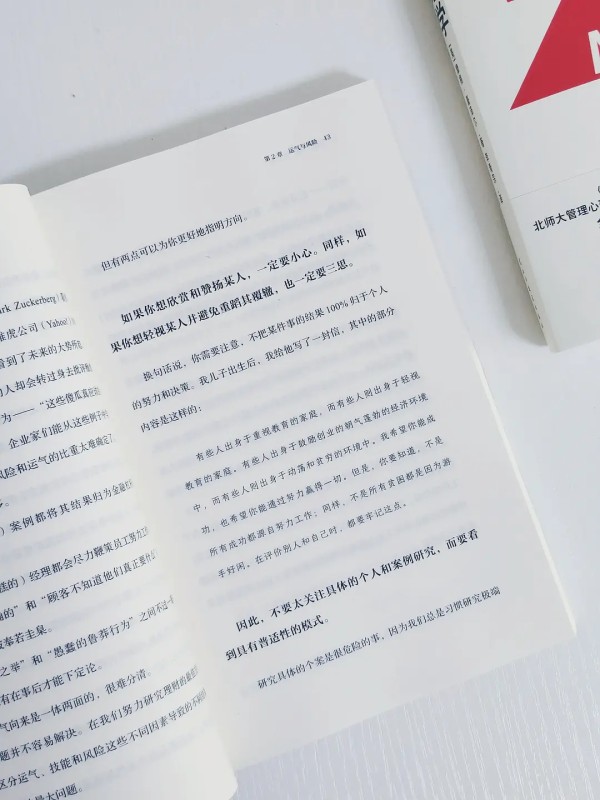 rk Zuckerberg）
雅虎公司（Yahoo!
看到了未来的大势所
的人却会转过身去批评他
为——“这些傻瓜真
企业家们能从这些例子
风险和运气的比重太难确定了
案例都将其结果归为
的）经理都会尽力鞭策员工努力工
的”和“顾客不知道他们真正要什
奉若圭臬。
之举”和“愚蠢的鲁莽行为”之间不过
有在事后才能下定论。
气向来是一体两面的，很难分清。
题并不容易解决。在我们努力研究理财的
区分运气、技能和风险这些不同因素导致的
最大问题。
第2章 运气与风险 43
但有两点可以为你更好地指明方向。
如果你想欣赏和赞扬某人，一定要小心。同样，如
果你想轻视某人并避免重蹈其覆辙，也一定要三思。
换句话说，你需要注意，不把某件事的结果100%归于个人
的努力和决策。我儿子出生后，我给他写了一封信，其中的部分
内容是这样的：
有些人出身于重视教育的家庭，而有些人则出身于轻视
教育的家庭。有些人出身于鼓励创业的朝气蓬勃的经济环境
中，而有些人则出身于动荡和贫穷的环境中。我希望你能成
功，也希望你能通过努力赢得一切。但是，你要知道，不是
所有成功都源自努力工作；同样，不是所有贫困都是因为游
手好闲。在评价别人和自己时，都要牢记这点。
因此，不要太关注具体的个人和案例研究，而要看
到具有普适性的模式。
研究具体的个案是很危险的事，因为我们总是习惯研究极端
北师大管理心